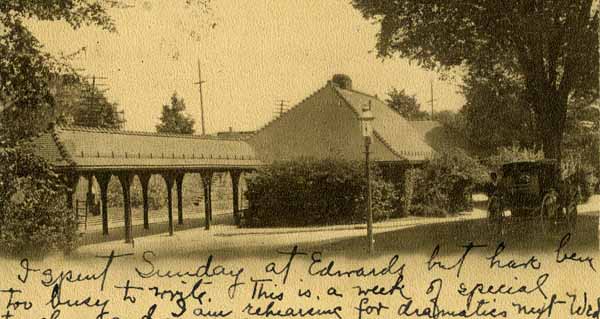 I spent Sunday at Edwards but have been
too busy to write. This is a week of special
I am rehearsing for dramatics next Wed